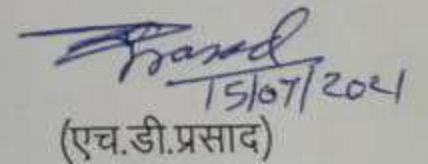 Prasad
15/07/2021
(एच.डी.प्रसाद)